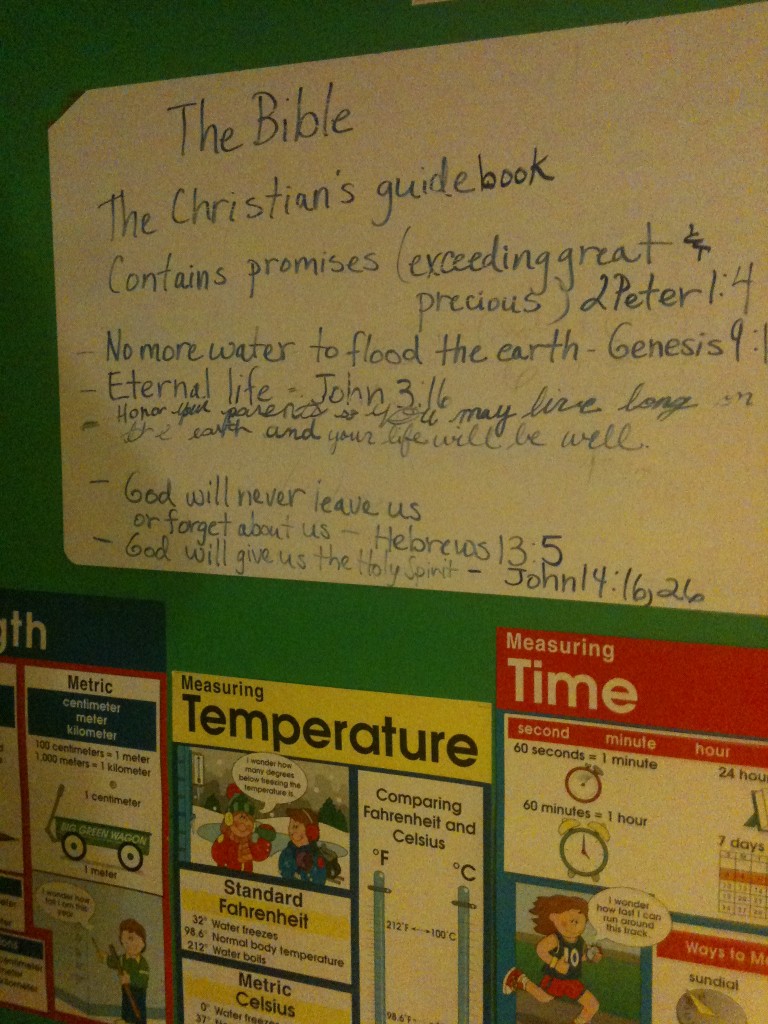 The Bible
The Christian's guidebook
Contains promises (exceeding great &
precious) 2 Peter 1:4
- No more water to flood the earth - Genesis 9:1
- Eternal life - John 3:16
- Honor your parents so you may live long on
the earth and your life will be well.
- God will never leave us
or forget about us - Hebrews 13:5
- God will give us the Holy Spirit - John 14:16,26
gth
Metric
centimeter
meter
kilometer
100 centimeters = 1 meter
1,000 meters = 1 kilometer
1 centimeter
BIG GREEN WAGON
1 meter
Measuring
Temperature
I wonder how
many degrees
below freezing the
temperature is.
Standard
Fahrenheit
32° Water freezes
98.6° Normal body temperature
212° Water boils
Metric
Celsius
0° Water freezes
37°
Comparing
Fahrenheit and
Celsius
°F
°C
212°F
100°C
98.6°F
Measuring
Time
second minute hour
60 seconds = 1 minute
60 minutes = 1 hour
24 hou
7 days
I wonder
how fast I can
run around
this track.
10
Ways to M
sundial